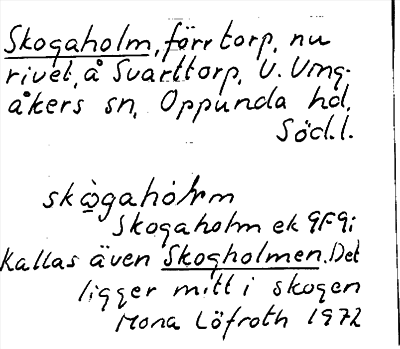 Skogaholm, förr torp, nu
rivet, å Svarttorp, V. Ving-
åkers sn, Oppunda hd,
Söd.l.
skògahòlm
Skogaholm ek 9F9i
Kallas även Skogholmen. Det
ligger mitt i skogen
Mona Löfroth 1972